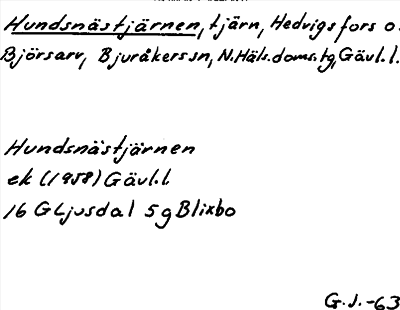 Hundsnästjärnen, tjärn, Hedvigsfors o.
Björsarv, Bjuråkers sn, N.Häls.doms.tg, Gävl.l.
Hundsnästjärnen
ek (1958) Gävl.l
16 G Ljusdal 5 g Blixbo
G.J.-63